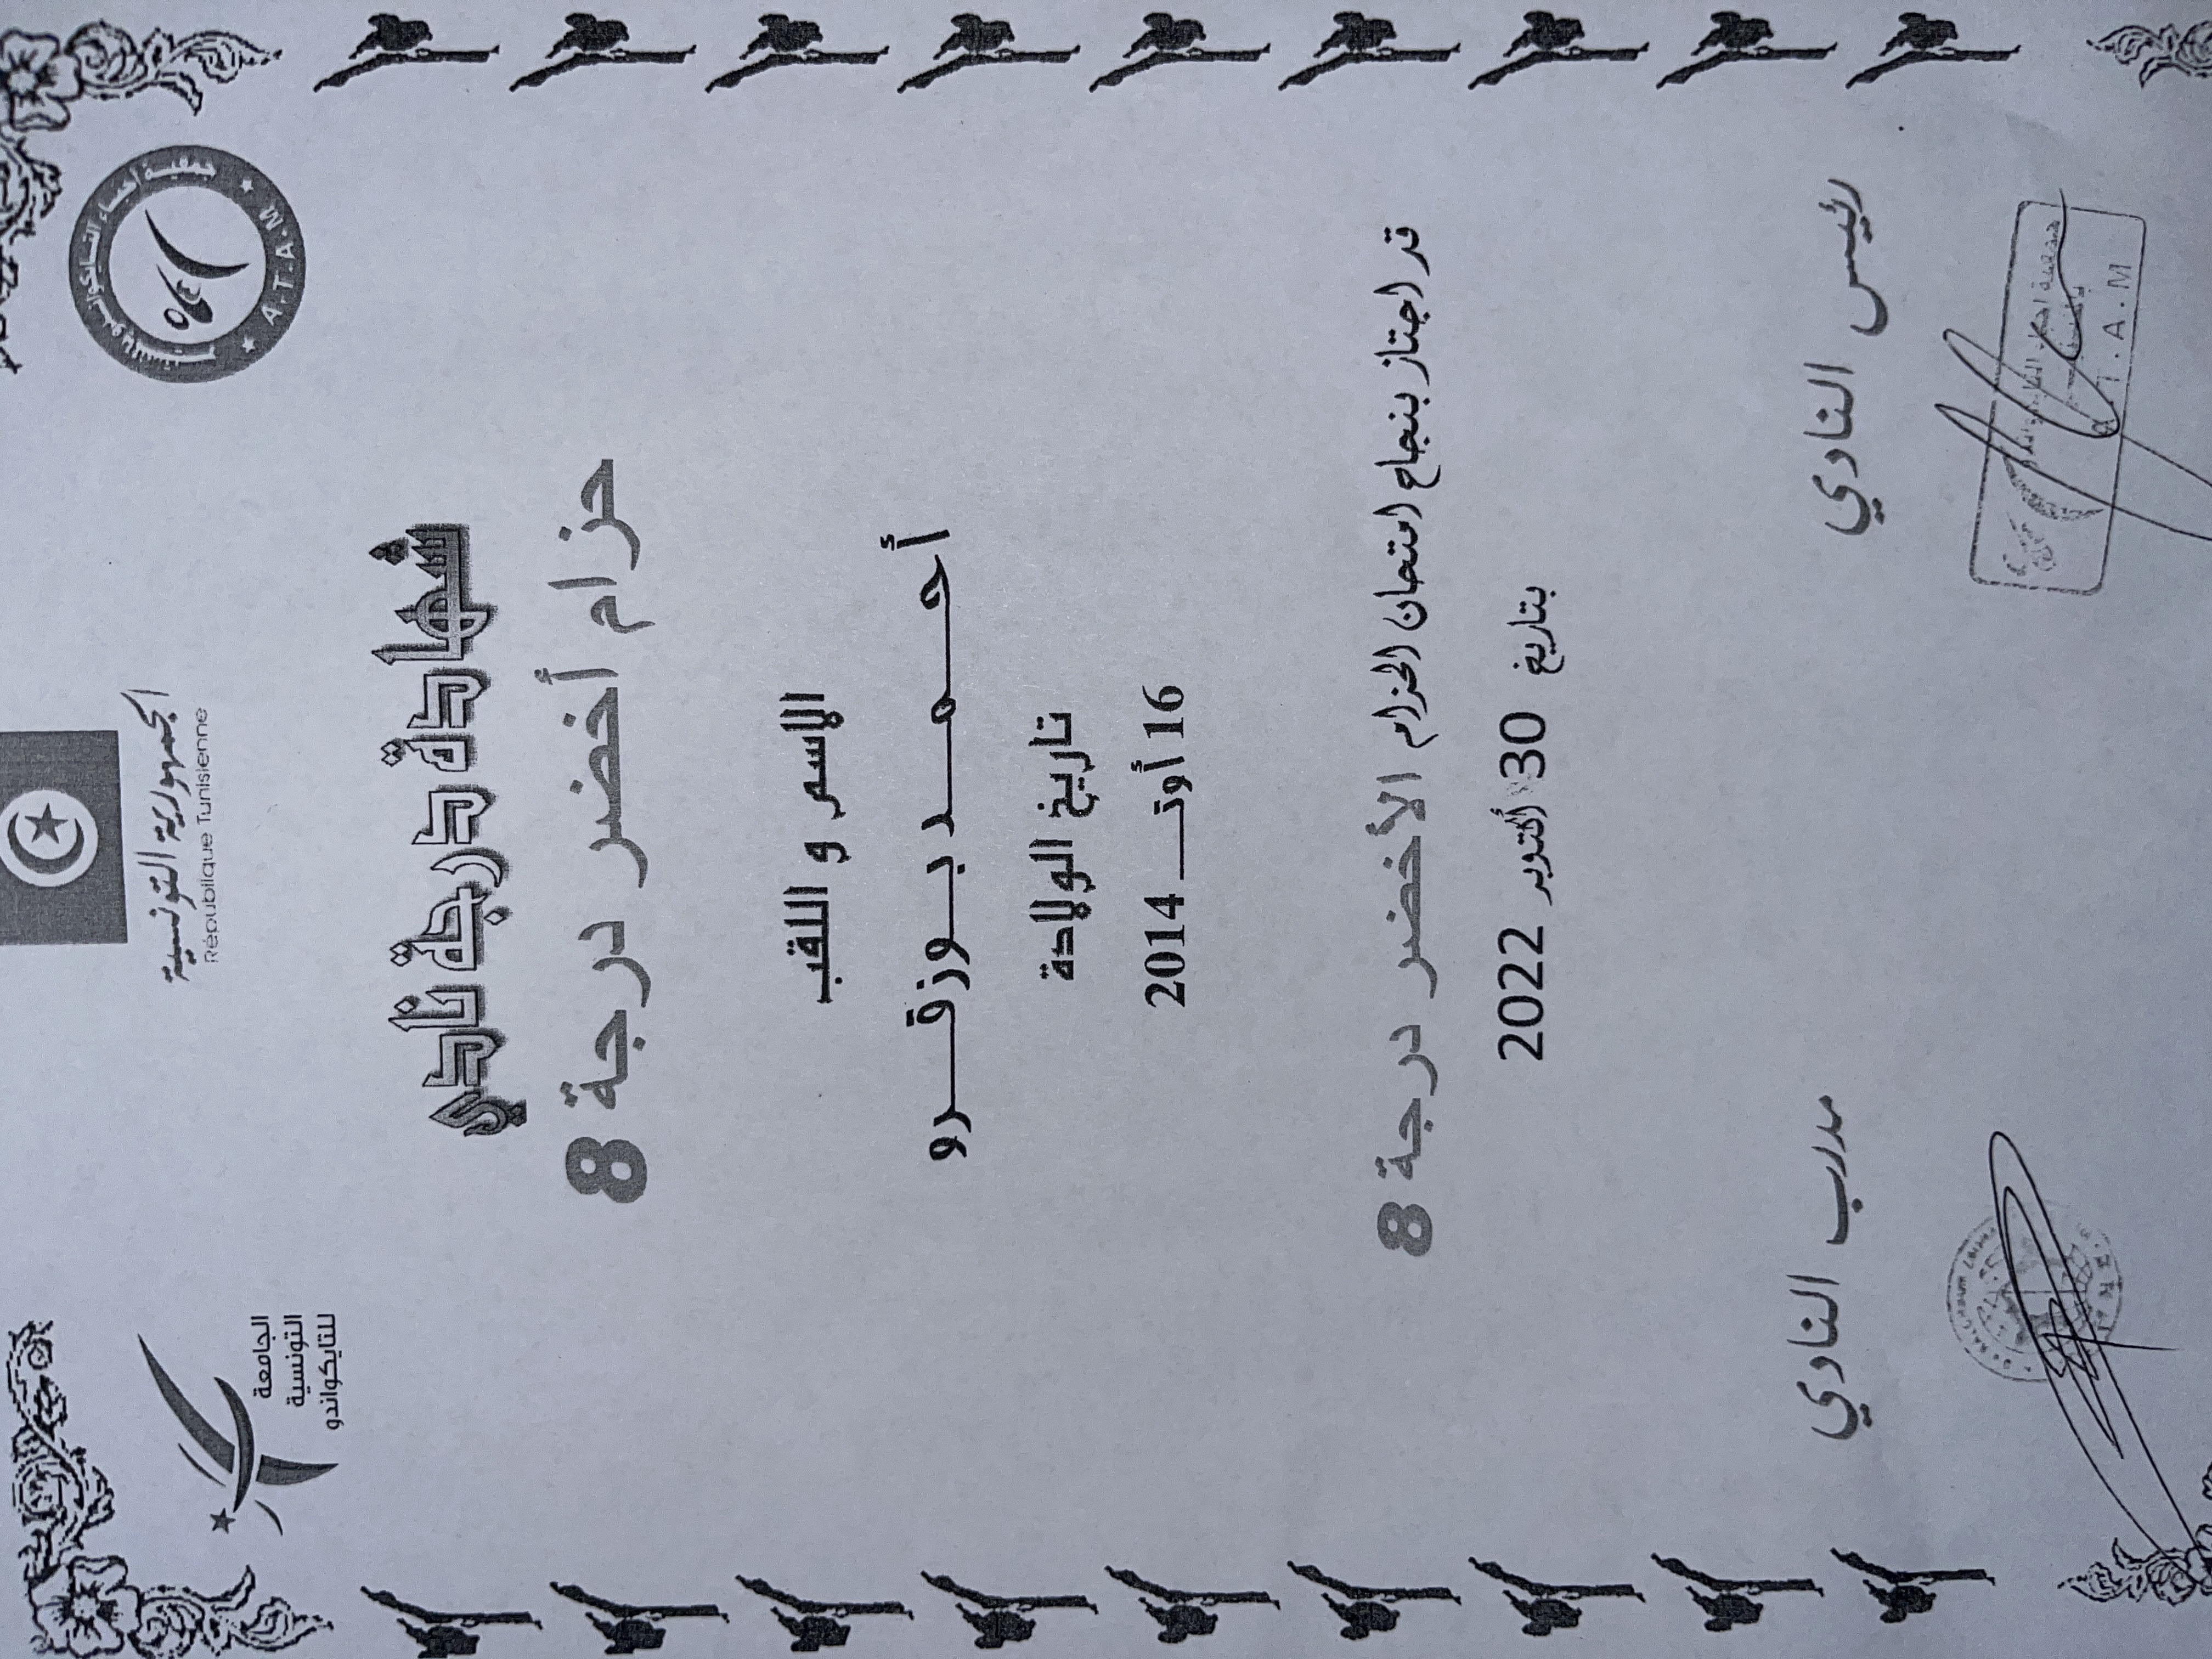 الجمهورية التونسية
République Tunisienne
الجامعة
التونسية
للتايكواندو
جمعية أحباء التايكواندو
A.T.A.M
شهادة درجة نادي
حزام أخضر درجة 8
الاسم و اللقب
أحـــمـــد بـــوزقـــرو
تاريخ الولادة
16 أوتـــ 2014
قد اجتاز بنجاح امتحان الحزام الأخضر درجة 8
بتاريخ 30 أكتوبر 2022
رئيس النادي
مدرب النادي